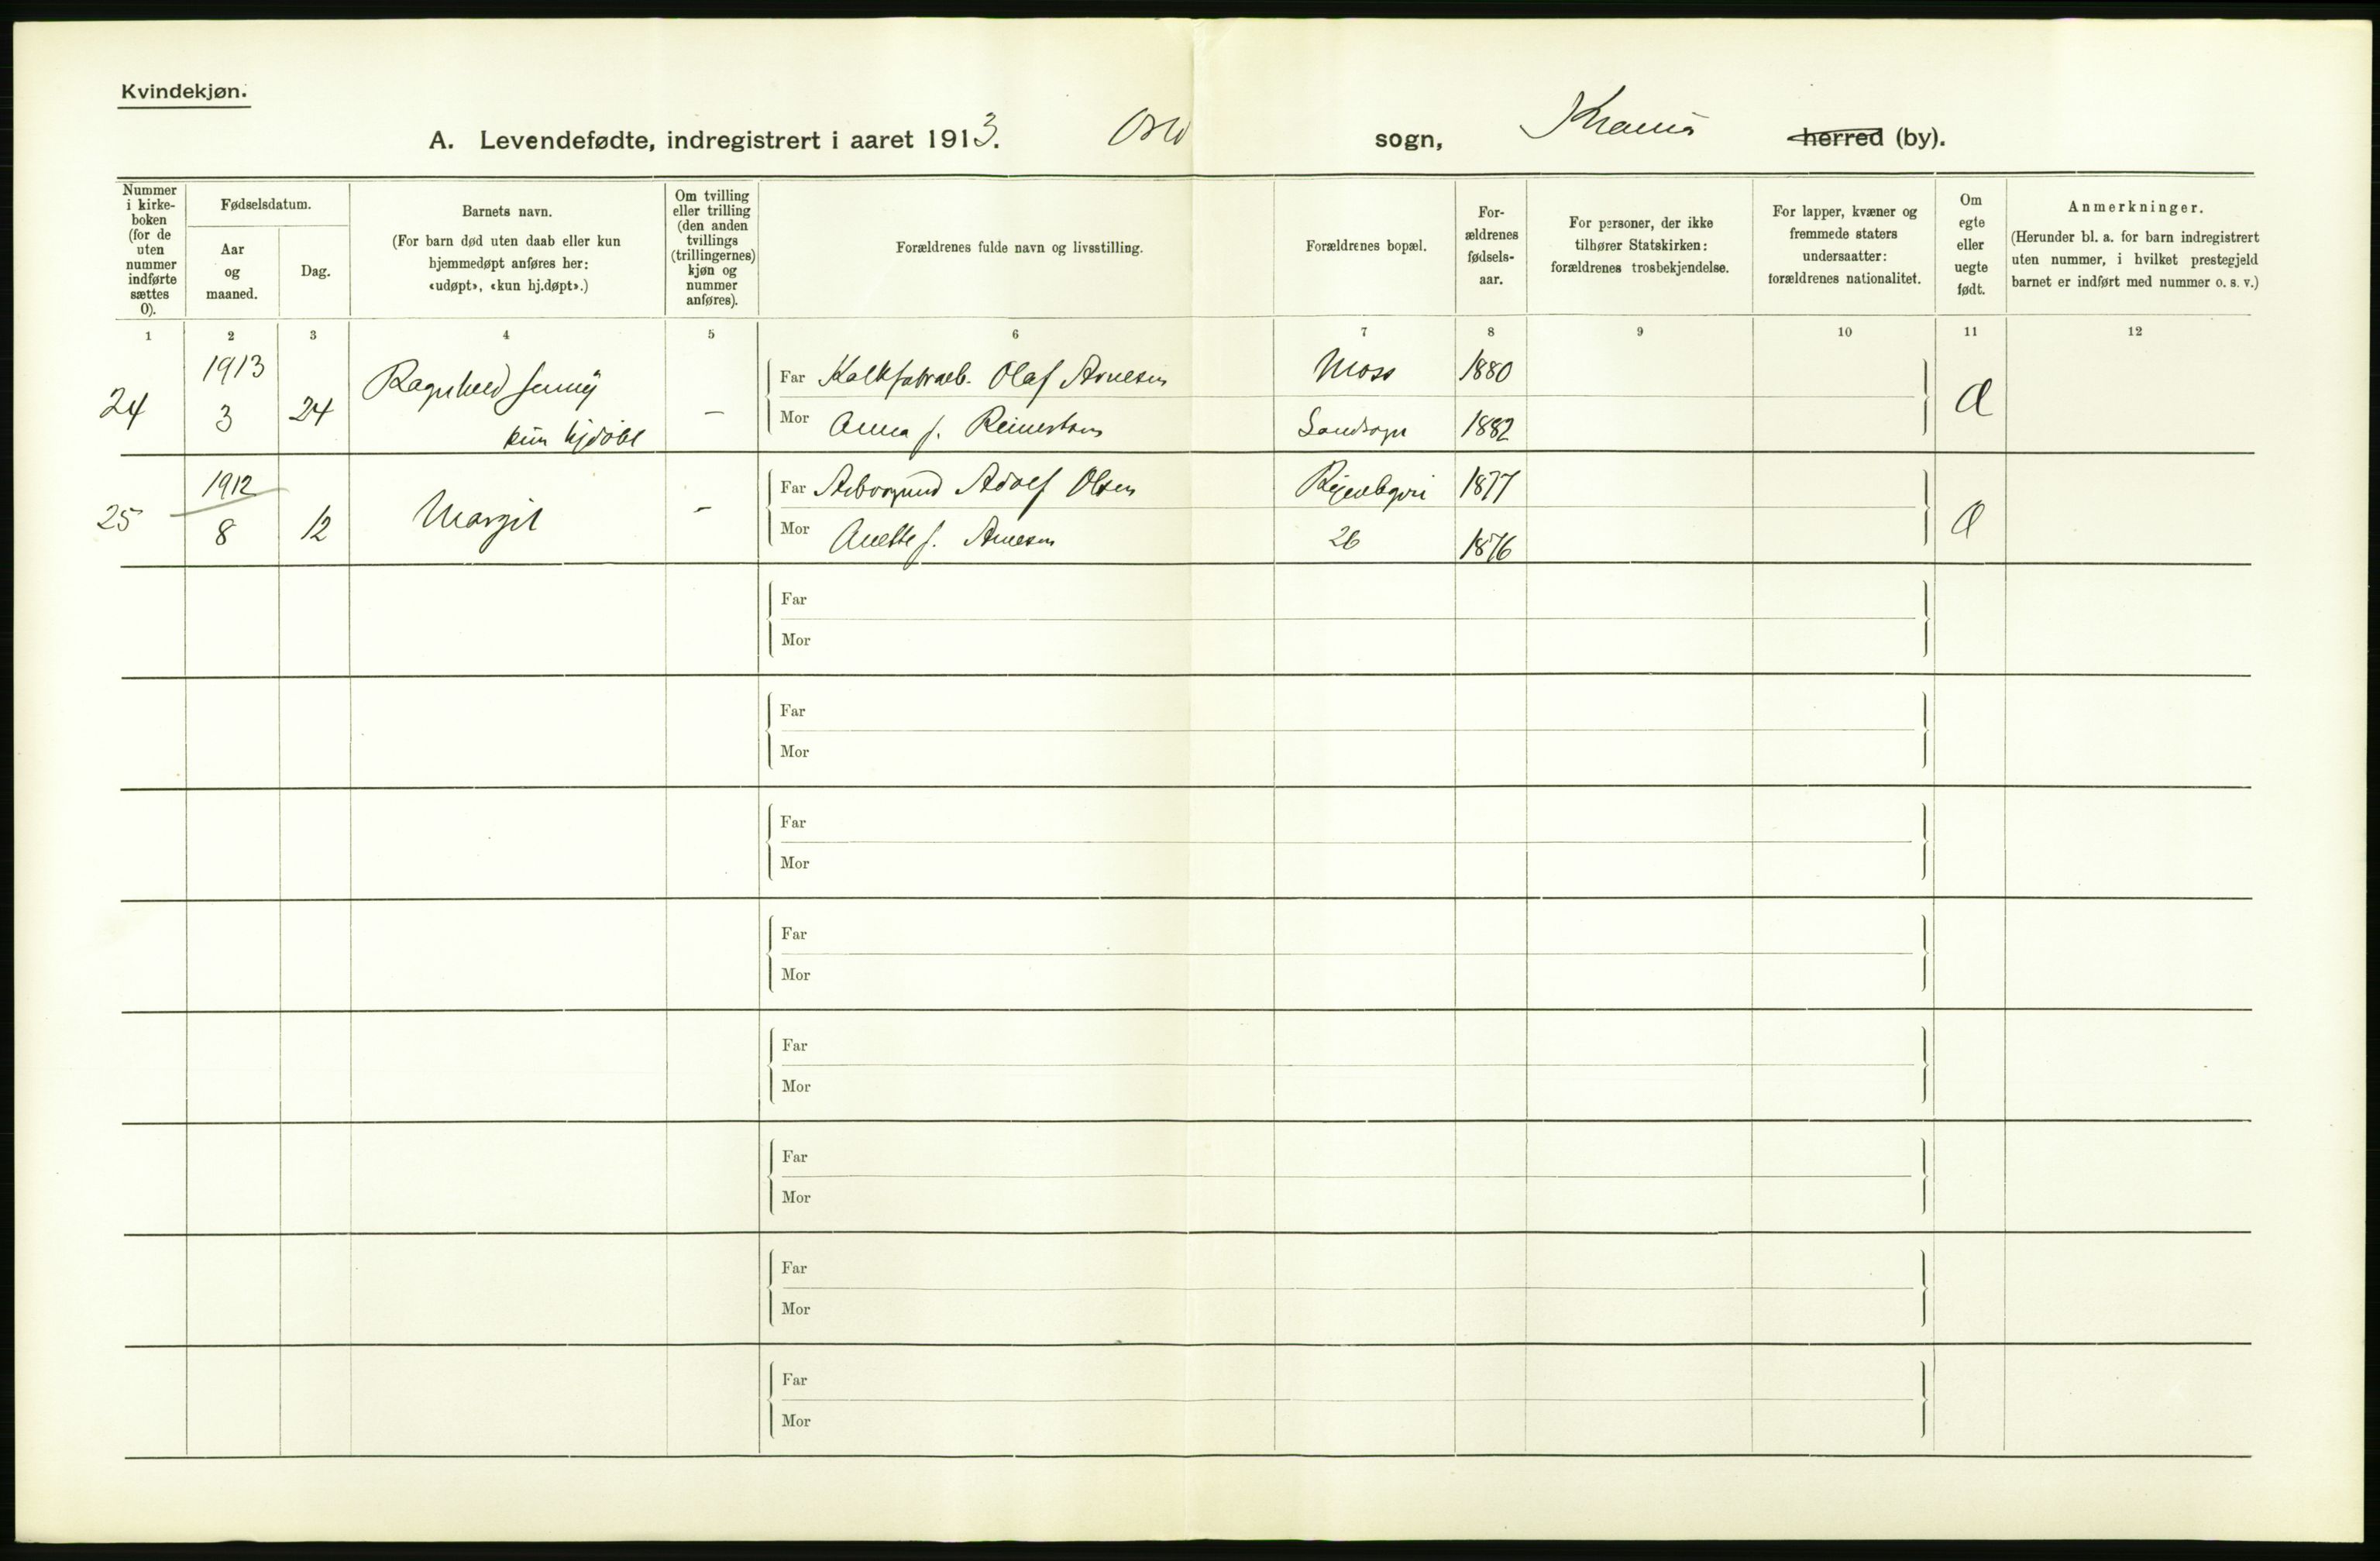 Kvindekjøn.
A. Levendefødte, indregistrert i aaret 1913. Oslo sogn, Kr.ania herred (by).
Nummer i kirke-boken (for de uten nummer indførte sættes 0).
Fødselsdatum.
Aar og maaned.
Dag.
Barnets navn.
(For barn død uten daab eller kun hjemmedøpt anføres her: «udøpt», «kun hj.døpt».)
Om tvilling eller trilling (den anden tvillings (trillingernes) kjøn og nummer anføres).
Forældrenes fulde navn og livsstilling.
Forældrenes bopæl.
For-ældrenes fødsels-aar.
For personer, der ikke tilhører Statskirken: forældrenes trosbekjendelse.
For lapper, kvæner og fremmede staters undersaatter: forældrenes nationalitet.
Om egte eller uegte født.
Anmerkninger.
(Herunder bl. a. for barn indregistrert uten nummer, i hvilket prestegjeld barnet er indført med nummer o. s. v.)
1 2 3 4 5 6 7 8 9 10 11 12
24 1913 3 24 Ragnhild Jenny kun hjdøbt –
Far Kalkfabrarb. Olaf Arnesen Moss 1880
Mor Anna f. Reinertsen 1882
25 1912 8 12 Margit –
Far Adolf Olsen 1877
Mor Anette f. Arnesen 26 1876
Far
Mor
Far
Mor
Far
Mor
Far
Mor
Far
Mor
Far
Mor
Far
Mor
Far
Mor